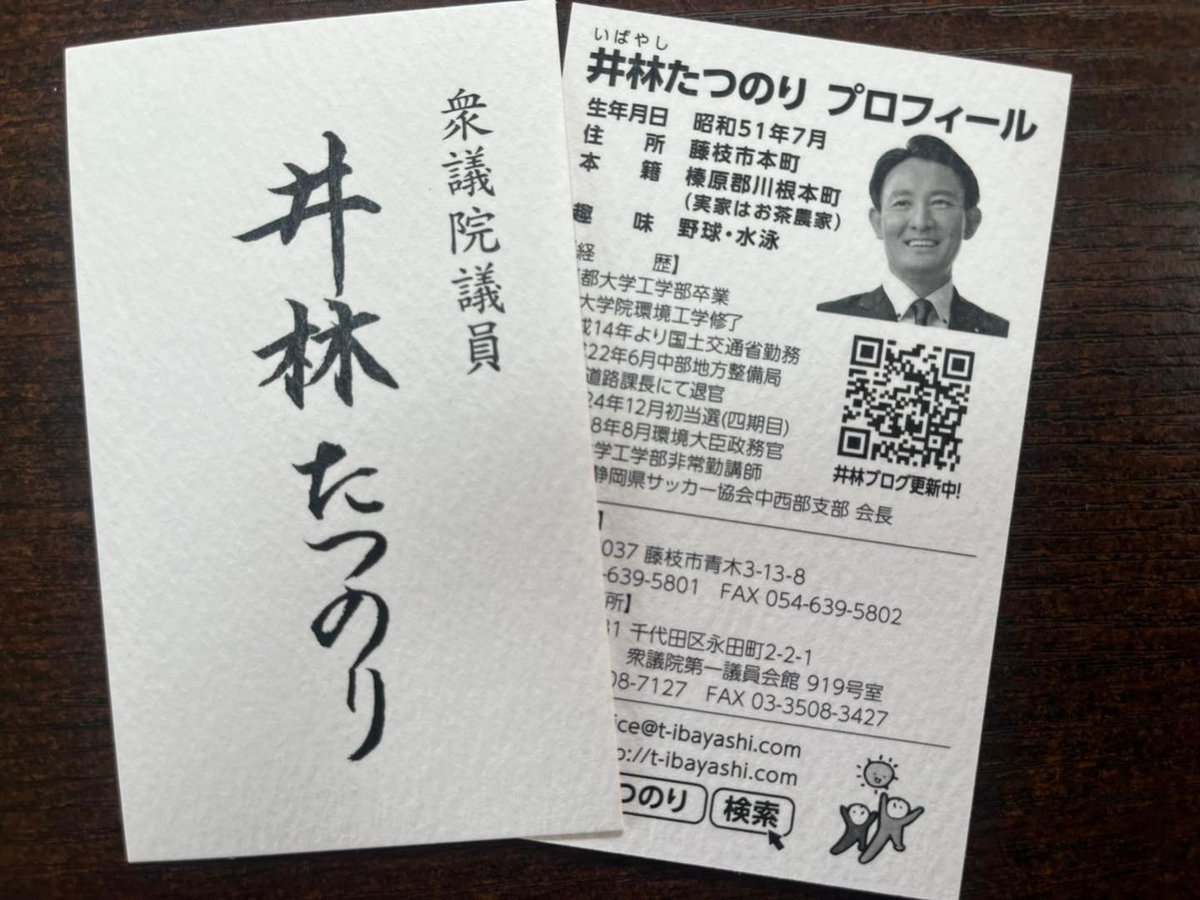 衆議院議員
井林たつのり
いばやし
井林たつのり プロフィール
生年月日 昭和51年7月
住所 藤枝市本町
本籍 榛原郡川根本町
(実家はお茶農家)
趣味 野球・水泳
経歴】
都大学工学部卒業
大学院環境工学修了
14年より国土交通省勤務
22年6月中部地方整備局
道路課長にて退官
24年12月初当選(四期目)
8年8月環境大臣政務官
学工学部非常勤講師
静岡県サッカー協会中西部支部 会長
井林ブログ更新中!
】
037 藤枝市青木3-13-8
-639-5801 FAX 054-639-5802
所】
千代田区永田町2-2-1
衆議院第一議員会館 919号室
08-7127 FAX 03-3508-3427
ice@t-ibayashi.com
p://t-ibayashi.com
つのり 検索